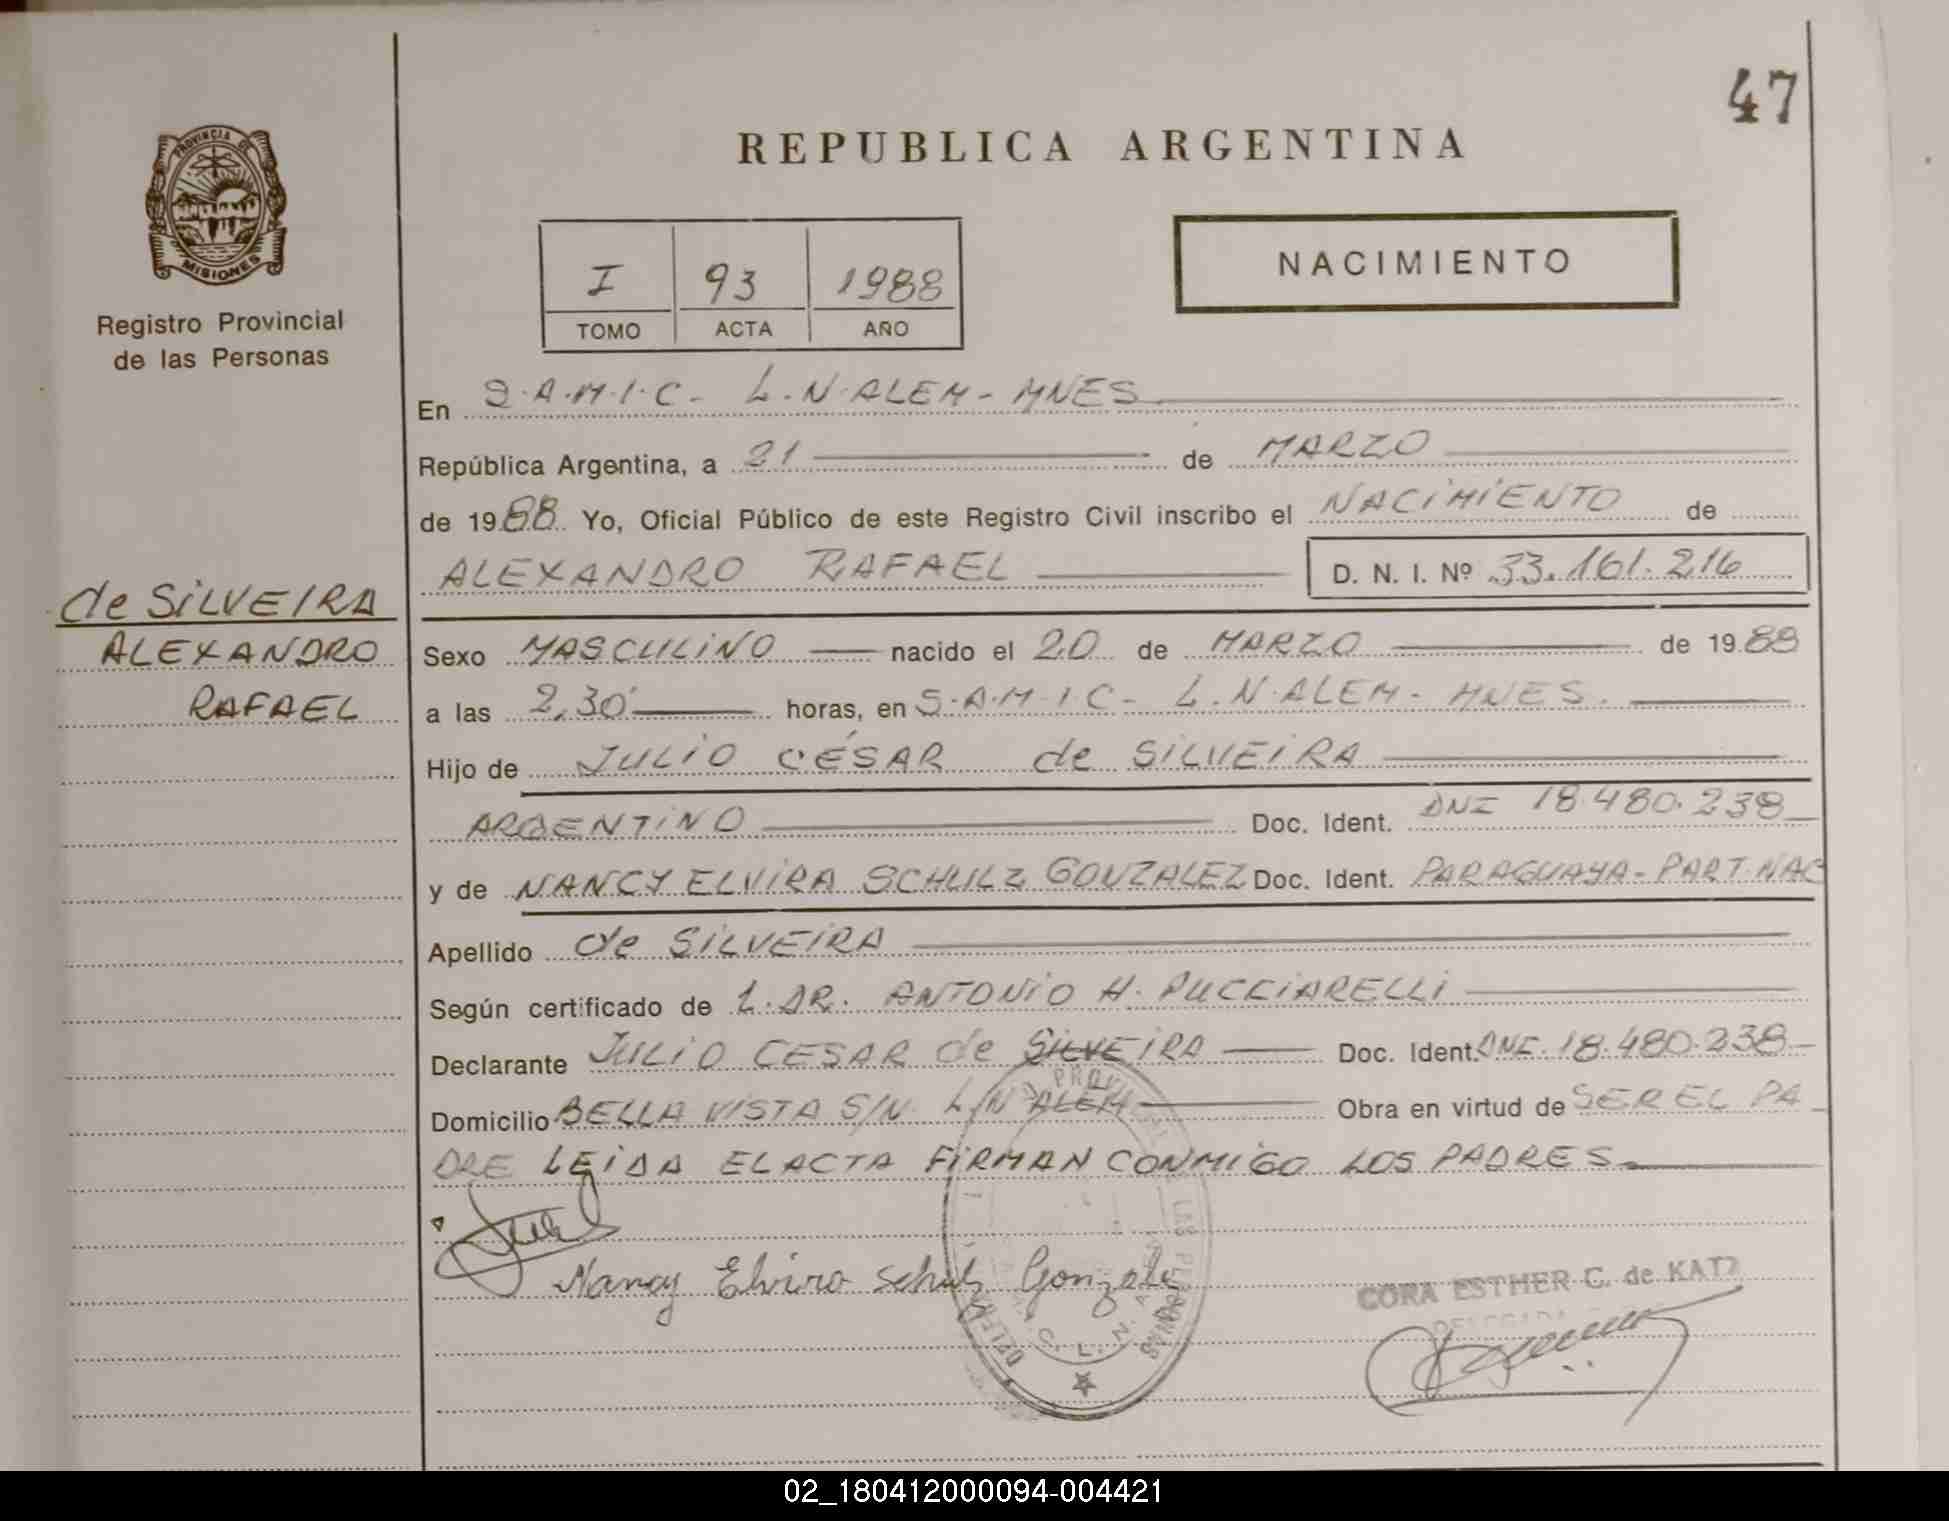 47
REPUBLICA ARGENTINA
PROVINCIA DE
MISIONES
Registro Provincial
de las Personas
I 93 1988
TOMO ACTA AÑO
NACIMIENTO
En S.A.M.I.C- L.N.ALEM- MNES
República Argentina, a 21 de MARZO
de 1988 Yo, Oficial Público de este Registro Civil inscribo el NACIMIENTO de
ALEXANDRO RAFAEL D. N. I. Nº 33.161.216
de SILVEIRA
ALEXANDRO
RAFAEL
Sexo MASCULINO nacido el 20 de MARZO de 1988
a las 2,30 horas, en S.A.M.I.C- L.N.ALEM- MNES.
Hijo de JULIO CÉSAR de SILVEIRA
ARGENTINO Doc. Ident. DNI 18.480.238
y de NANCY ELVIRA SCHULZ GONZALEZ Doc. Ident. PARAGUAYA-PART.NAC
Apellido de SILVEIRA
Según certificado de L. DR. ANTONIO H. PUCCIARELLI
Declarante JULIO CESAR de SILVEIRA Doc. Ident. DNI. 18.480.238
Domicilio BELLA VISTA S/N. L/N ALEM Obra en virtud de SER EL PA
DRE LEIDA EL ACTA FIRMAN CONMIGO LOS PADRES
Nancy Elvira Schulz Gonzalez
CORA ESTHER C. de KATZ
DELEGADA
02_180412000094-004421